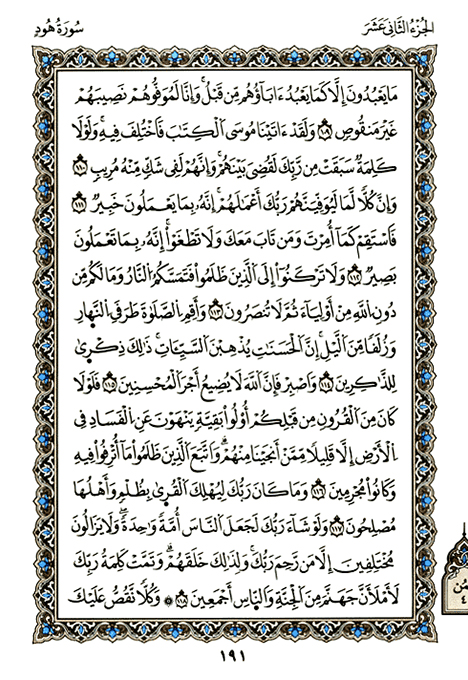 الجزء الثاني عشر
سورة هود
ما يعبدون إلا كما يعبد ءاباؤهم من قبل وإنا لموفوهم نصيبهم
غير منقوص ١٠٩ ولقد ءاتينا موسى الكتب فاختلف فيه ولولا
كلمة سبقت من ربك لقضي بينهم وإنهم لفي شك منه مريب ١١٠
وإن كلا لما ليوفينهم ربك أعملهم إنه بما يعملون خبير ١١١
فاستقم كما أمرت ومن تاب معك ولا تطغوا إنه بما تعملون
بصير ١١٢ ولا تركنوا إلى الذين ظلموا فتمسكم النار وما لكم من
دون الله من أولياء ثم لا تنصرون ١١٣ وأقم الصلاة طرفي النهار
وزلفا من اليل إن الحسنات يذهبن السيئات ذالك ذكرى
للذاكرين ١١٤ واصبر فإن الله لا يضيع أجر المحسنين ١١٥ فلولا
كان من القرون من قبلكم أولوا بقية ينهون عن الفساد في
الأرض إلا قليلا ممن أنجينا منهم واتبع الذين ظلموا ما أترفوا فيه
وكانوا مجرمين ١١٦ وما كان ربك ليهلك القرى بظلم وأهلها
مصلحون ١١٧ ولو شاء ربك لجعل الناس أمة واحدة ولا يزالون
مختلفين إلا من رحم ربك ولذلك خلقهم وتمت كلمة ربك
لأملأن جهنم من الجنة والناس أجمعين ١١٨ وكلا نقص عليك
١٩١